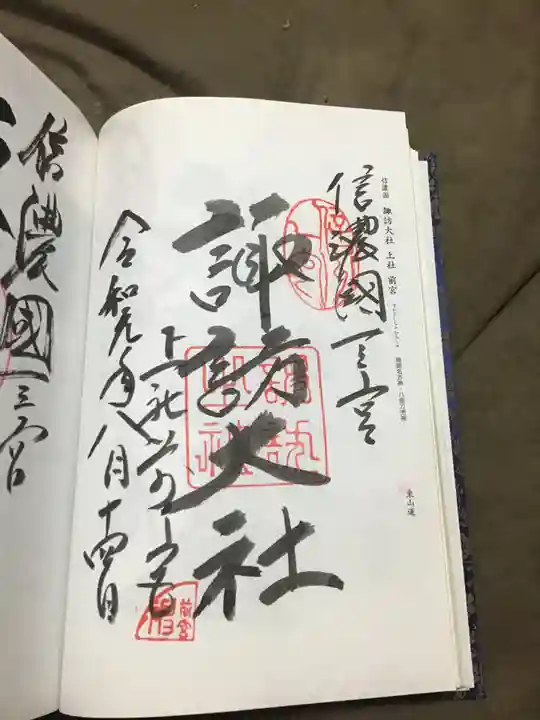 信濃國 諏訪大社 上社 前宮
東山道
信濃國一之宮
諏訪大社
上社前宮
令和元年八月十四日
前宮
信濃國三宮